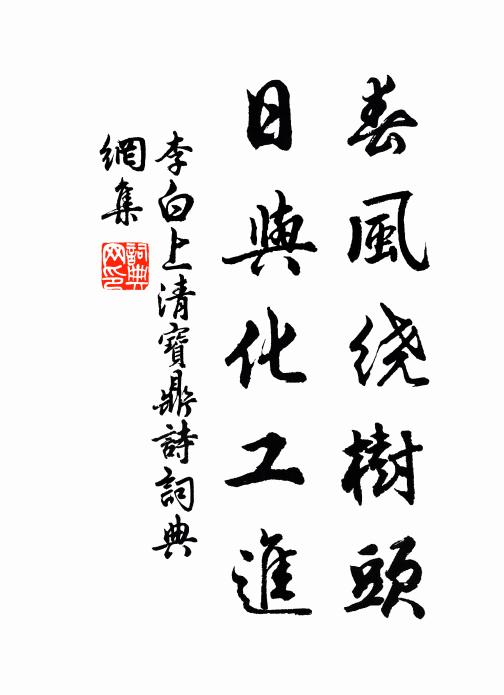 春風绕樹頭
日與化工進
李白上清寶鼎詩詞典
網集
詞典
网印